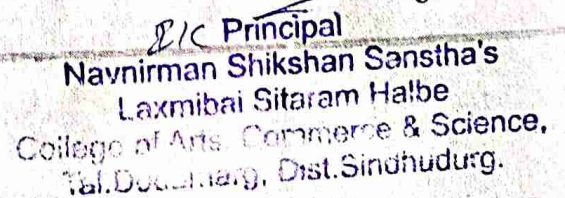 I/C Principal
Navnirman Shikshan Sanstha's
Laxmibai Sitaram Halbe
College of Arts, Commerce & Science,
Tal.Dodamarg, Dist.Sindhudurg.